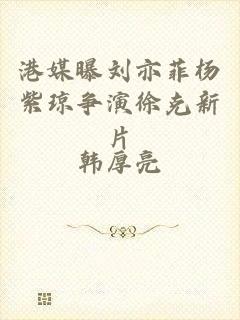 港媒曝刘亦菲杨
紫琼争演徐克新
片
韩厚亮